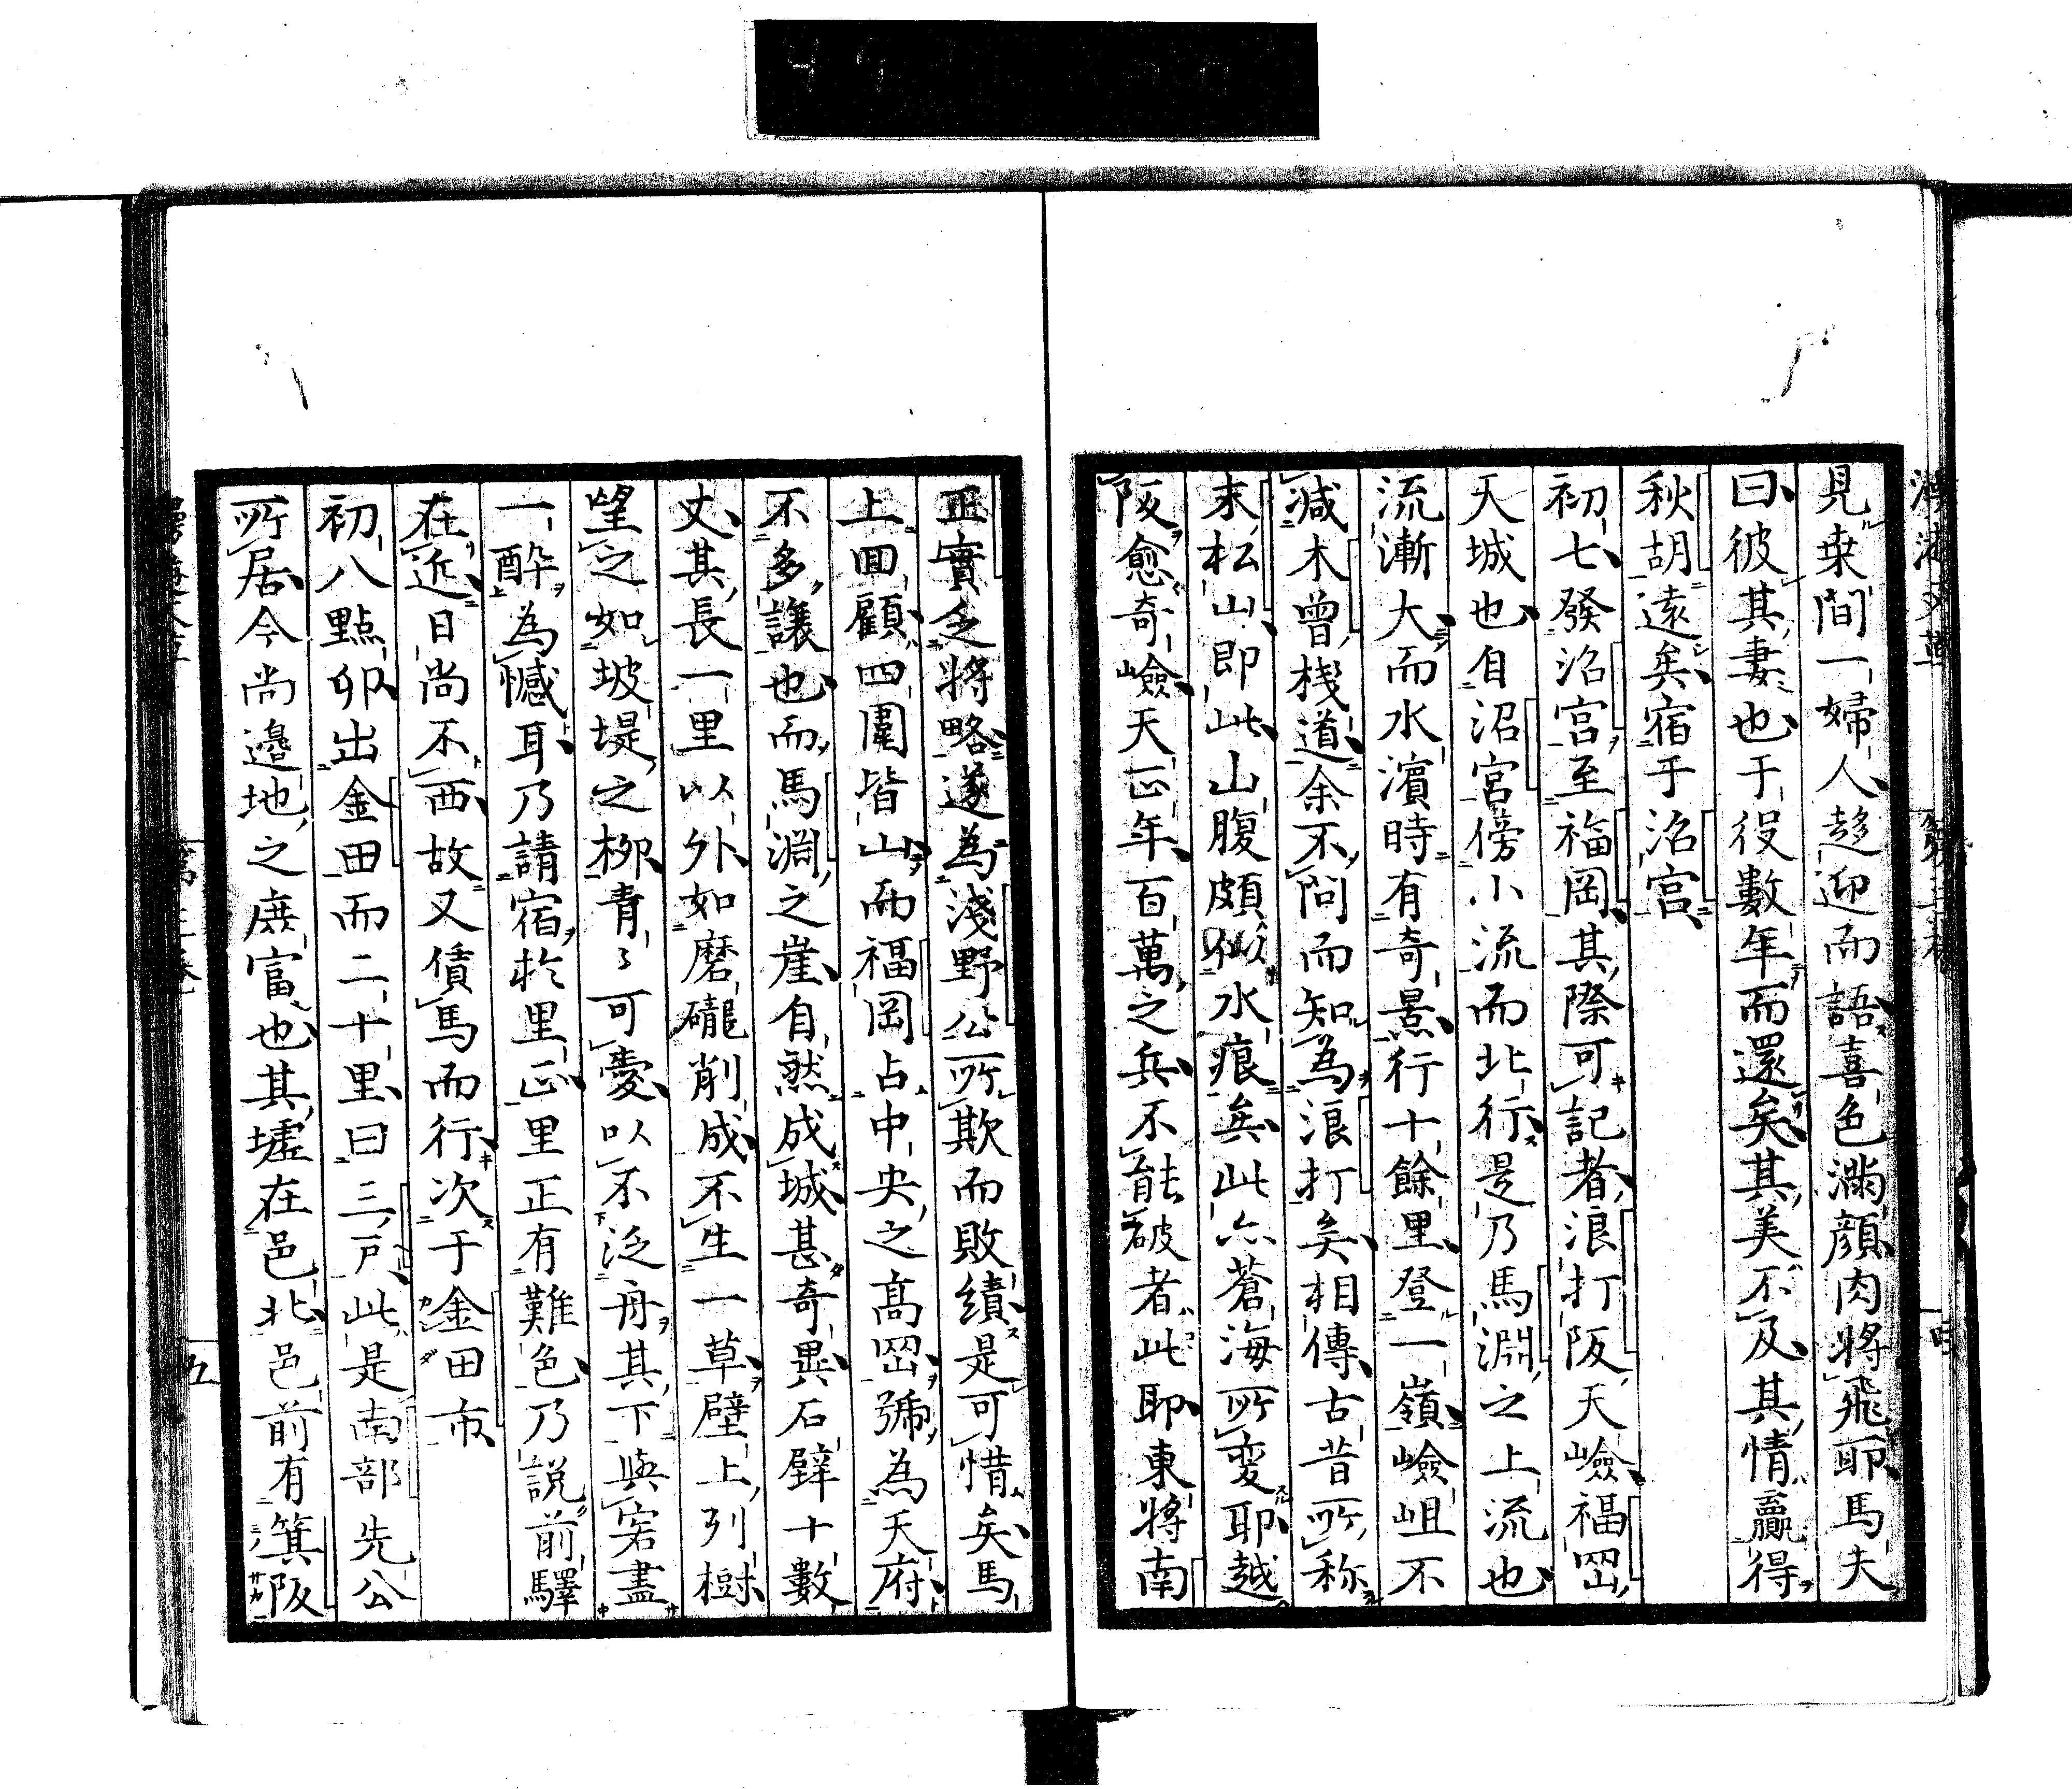 見桒間一婦人趍迎而語喜色滿顔肉將飛耶馬夫
曰彼其妻也于役數年而還矣其美不及其情贏得
秋胡遠矣宿于沼宮
初七發沼宮至福岡其際可記者浪打阪天嶮福岡
天城也自沼宮傍小流而北行是乃馬淵之上流也
流漸大而水濵時有奇景行十餘里登一嶺嶮岨不
减木曾棧道余不問而知為浪打矣相傳古昔所称
末松山即此山腹頗似水痕矣此亦蒼海所変耶越
阪愈奇嶮天正年百萬之兵不能破者此耶東將南
正實乏將略遂為淺野公所欺而敗績是可惜矣馬
上回顧四圍皆山而福岡占中央之髙岡號為天府
不多讓也而馬淵之崖自然成城甚奇異石壁十數
丈其長一里以外如磨礲削成不生一草壁上列樹
望之如坡堤之柳青〻可愛以不泛舟其下與宕盡
一醉為憾耳乃請宿於里正里正有難色乃説前驛
在近日尚不西故又債馬而行次于金田市
初八點卯出金田而二十里曰三戸此是南部先公
所居今尚邉地之庶富也其墟在邑北邑前有箕阪
五